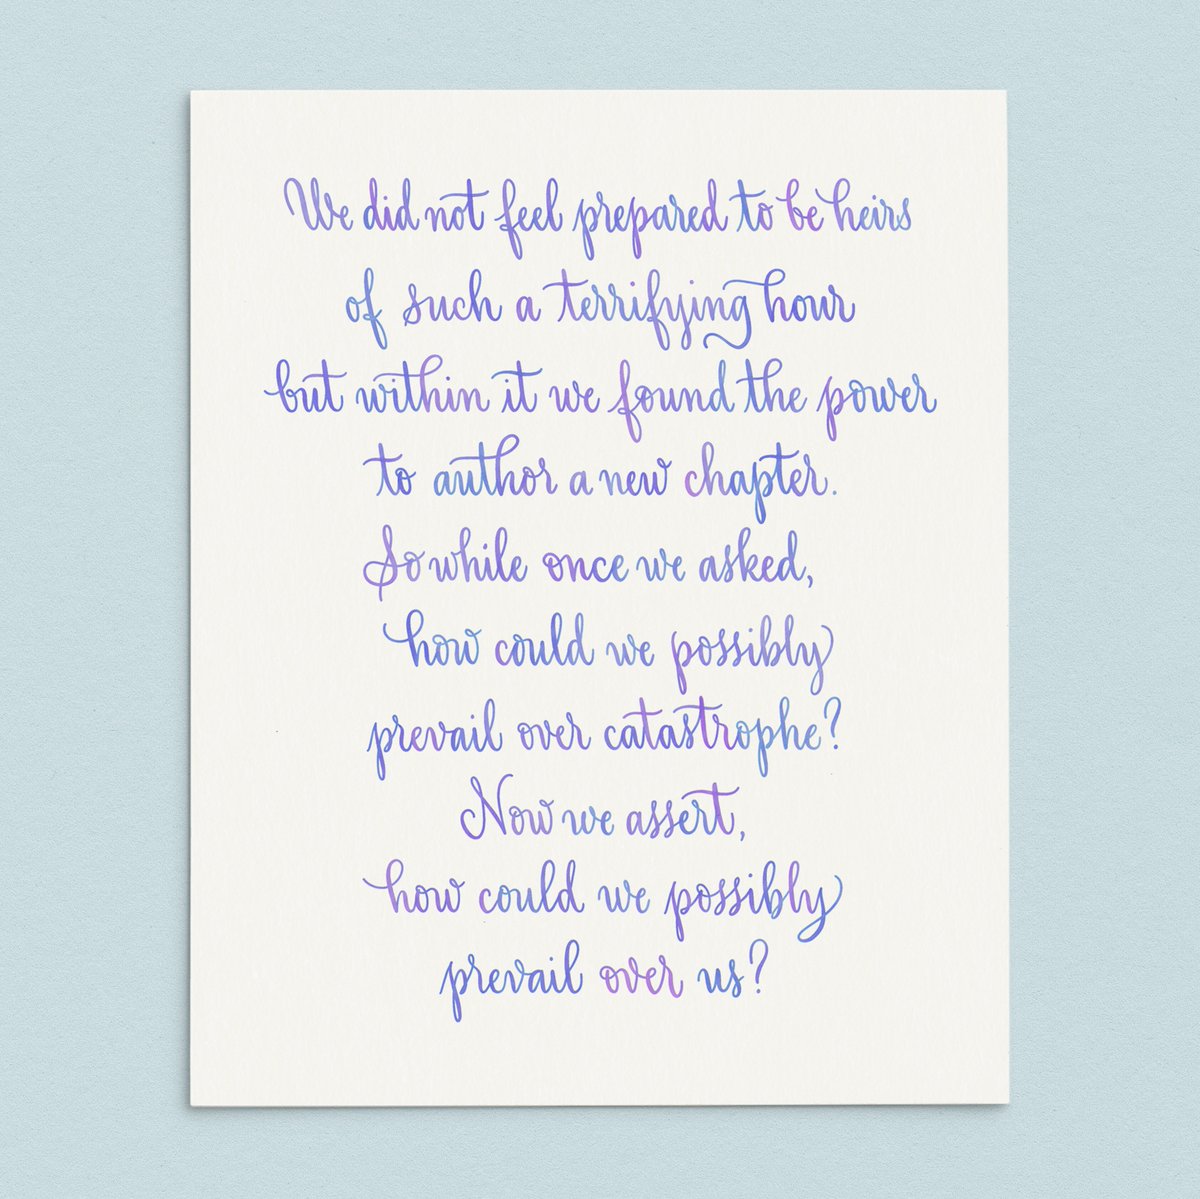 We did not feel prepared to be heirs
of such a terrifying hour
but within it we found the power
to author a new chapter.
So while once we asked,
how could we possibly
prevail over catastrophe?
Now we assert,
how could we possibly
prevail over us?